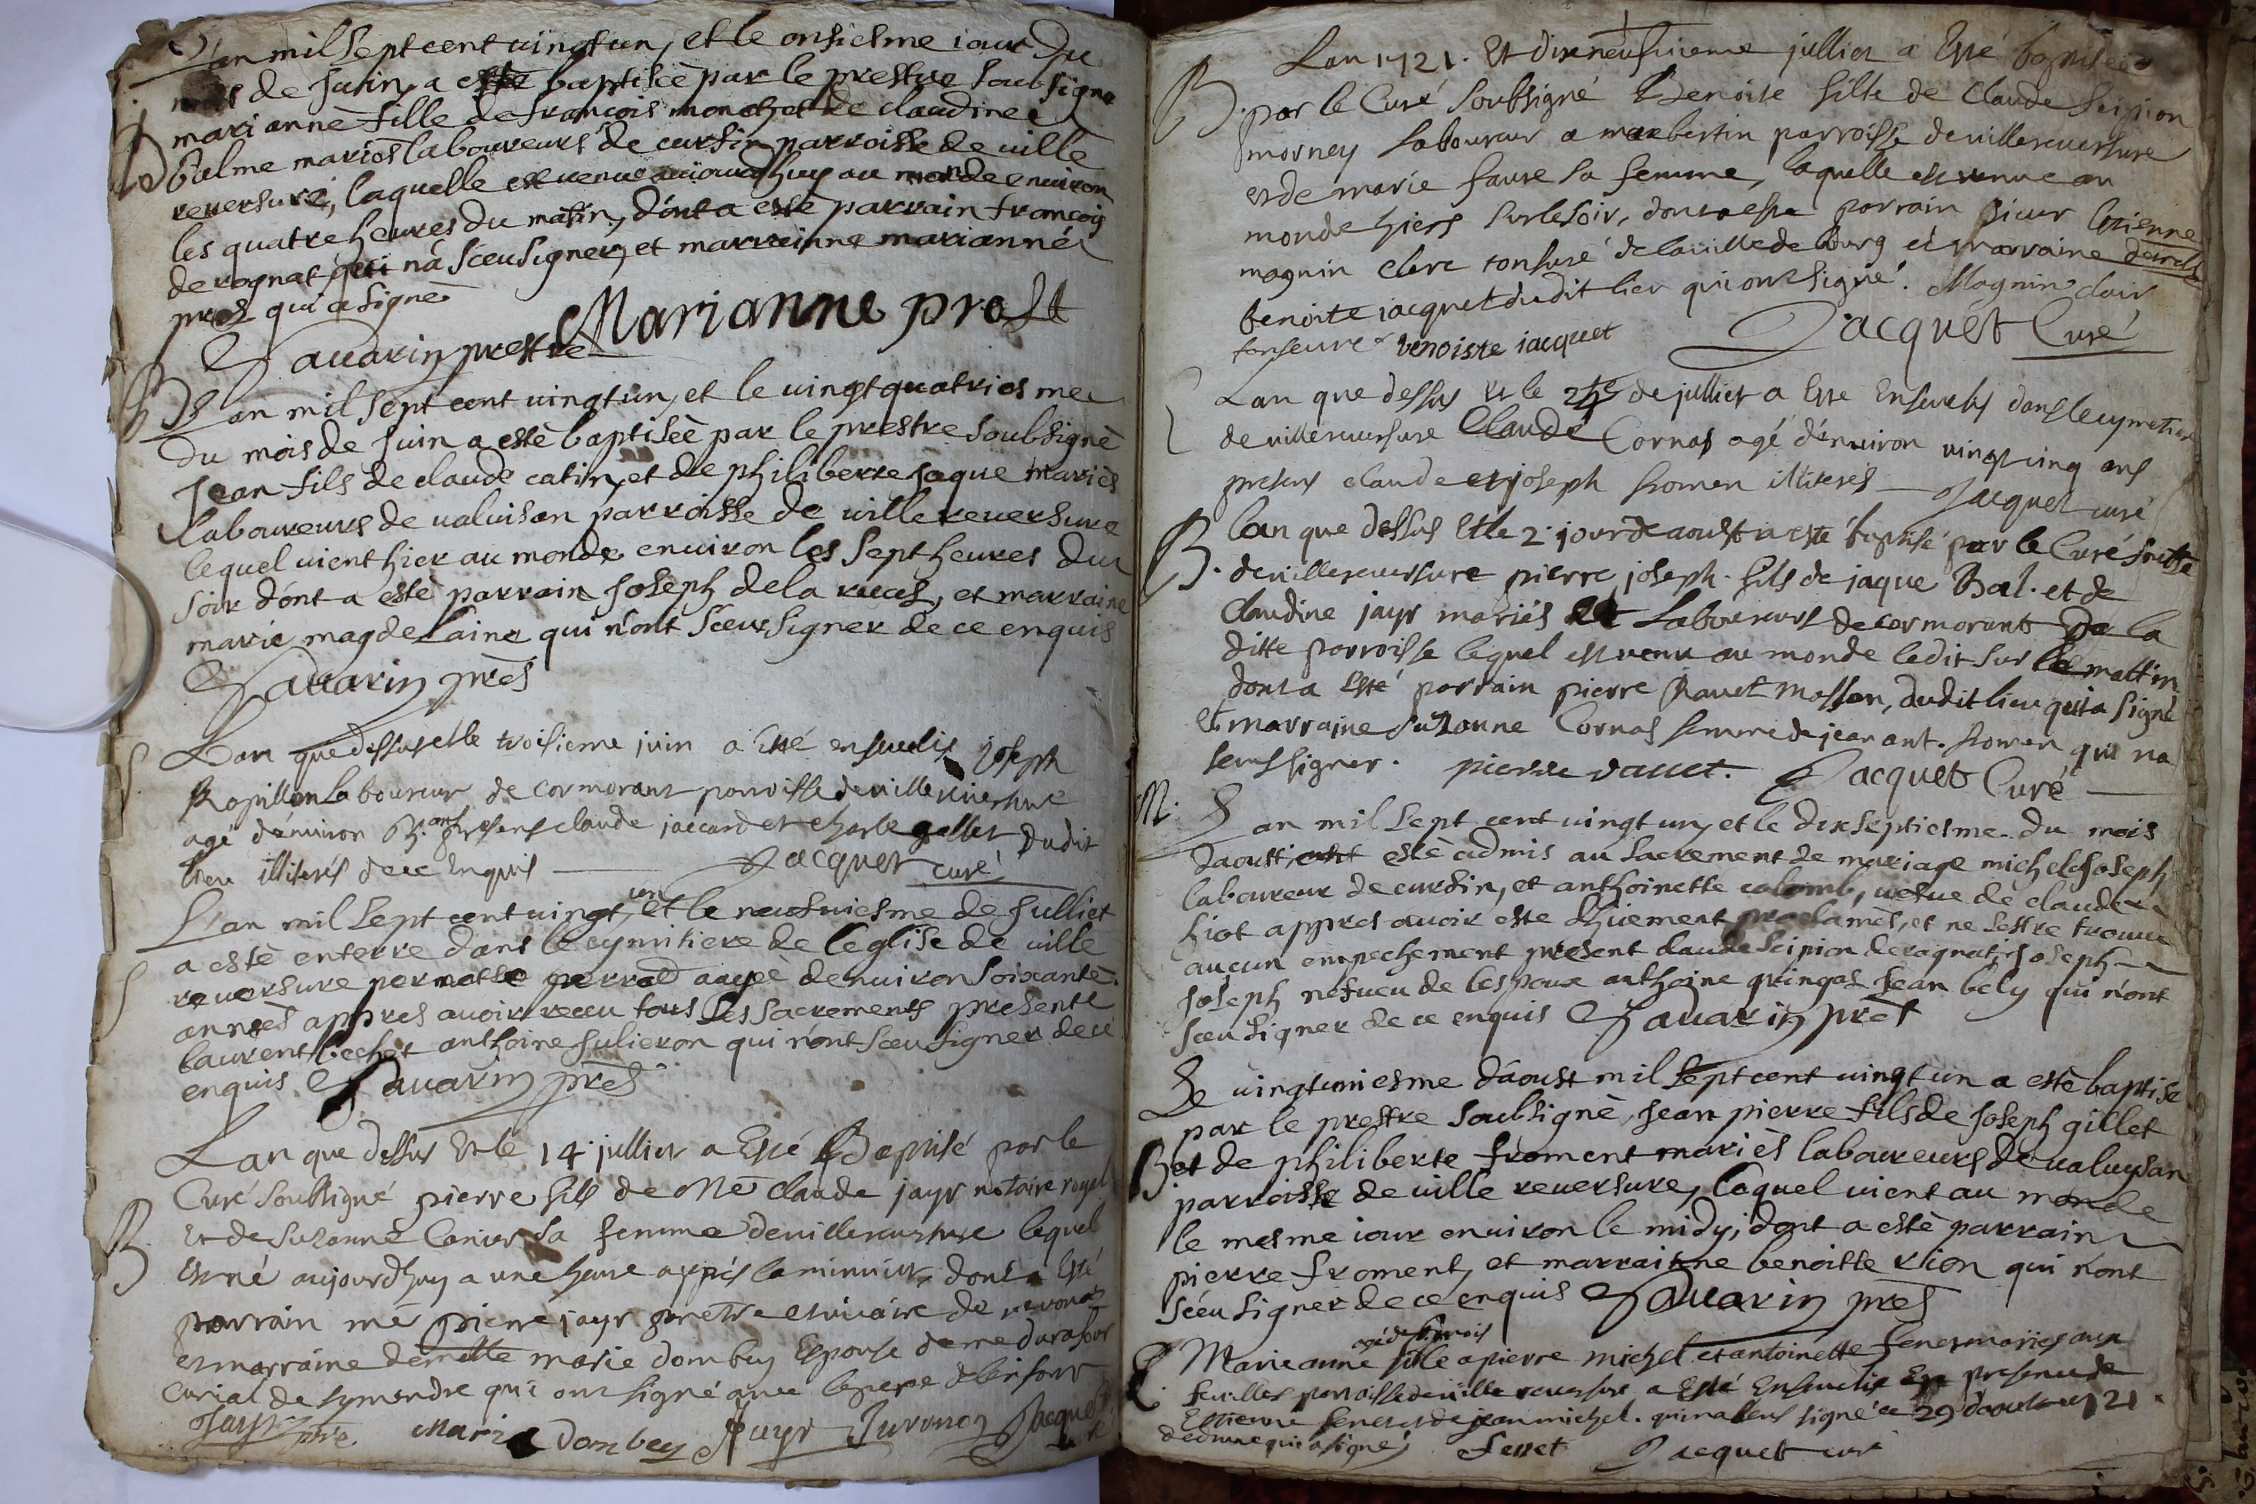 L'an mil sept cent vingt un, et le onsiesme iour du
mois de Juin, a estè baptiseè par le prestre soubsignè
B
marianne fille de francois monchet de claudine
balme mariès laboureurs de cursin parroisse de ville
reversure, laquelle est venue auiourdhuy au monde environ
les quatre heures du matin, dónt a estè parrain francois
deragnat, qui ná sceu signer, et marrainne marianne
prost qui a signè
Marianne prost
Savarin prestre
B
L'an mil sept cent vingt un, et le vingt quatriesme
du mois de Juin a estè baptiseè par le prestre soubsignè
Jean fils de claude catin, et de philiberte Jaque mariès
laboureurs de valuisan parroisse de ville reversure
lequel vient hier au monde environ les sept heures du
soir dónt a estè parrain Joseph dela rues, et marraine
marie magdelaine qui nónt sceu signer de ce enquis
Savarin pres
S
Lan que dessus et le troisieme juin a Esté ensevelis joseph
Ropillon laboureur de cormorant parroisse de villereversure
agé d'environ ans presens claude jaccard et charle gallet dudit
lieu illiterés de ce enquis Jacquet curé
L'an mil sept cent vingt un, et le neufviesme de Julliet
S
a estè enterre dans le cymitiere de leglise de ville
reversure pernette perrod aageè denviron soixante
anneès appres avoir receu tous les sacrements presents
laurent bechet anthoine Julieron qui nónt sceu signer de ce
enquis Savarin pres
Lan que dessus Et le 14 julliet a Esté Baptisé par le
Curé soubsigné pierre fils de Me Claude jayr notaire royal
B.
Et de Suzanne Canier sa femme de villereversure lequel
Est né aujourd'huy a une heure apprés la minuict, dont a Esté
parrain me pierre jayr prestre et vicaire de
et marraine demelle marie dombey Espouse de me durafour
curial de symandre qui ont signé avec le pere de lenfant
Jayr ptre Marie Dombey Jayr Jacquet
Lan 1721. Et dixneufvieme julliet a Esté baptisée
B.
par le Curé soubsigné Benoite fille de Claude scipion
morney laboureur a marbertin parroisse de villereversure
et de marie faure sa femme, laquelle est venue au
monde hiers sur le soir, dont a esté parrain sieur Etienne
magnin clerc tonsuré de la ville de bourg et marraine demelle
benoite jacquet dudit lieu qui ont signé. Magnin clair
tonseuré benoiste iacquet Jacquet Curé
Lan que dessus et le de julliet a Esté Ensevelis dans le cymetier
de villereversure Claude Cornas agé d'environ vingt cinq ans
presens claude et joseph fromen illiterés Jacquet curé
B.
lan que dessus Et le 2 jour de aoust a esté baptisé par le Curé
de villereversure pierre joseph fils de jaque Bal. et de
Claudine jayr mariés laboureurs de cormorant De la
ditte parroisse lequel est venu au monde ledit sur le mattin
dont a Esté parrain pierre Ravet masson, dudit lieu qui a signé
Et marraine suzanne Cornas femme de jean ant. fromen qui na
seu signer. pierre ravet. Jacquet Curé
M.
L'an mil sept cent vingt un, et le dixseptiesme du mois
daoust, ont estè admis au sacrement de mariage michel Joseph
laboureur de cursin, et anthoinette colomb, vefue de claude
liot appres avoir este dhuement proclamès, et ne sestre trouvè
aucun empechement present claude scipion deragnat, Joseph
Joseph nefueu de lespoux anthoine gringas Jean bely qui nónt
sceu signer de ce enquis Savarin pret
Le vingtuniesme dáoust mil sept cent vingt un a estè baptise
par le prestre soubsignè, Jean pierre fils de Joseph gillet
B
et de philiberte froment mariès laboureurs de valuysan
parroisse de ville reversure, lequel vient au monde
le mesme iour environ le midy, dont a estè parrain
pierre froment, et marrainne benoitte rion qui nónt
sceu signer de ce enquis Savarin pres
agé de mois
S.
Marie anne fille a pierre michel et antoinette feneret mariés aux
feuilles parroisse de ville reversure a Esté Ensevelis En presence de
Estienne feneret et de jean michel. qui na seus signé ce 29 daoust 1721
qui a signé ferret Jacquet curé